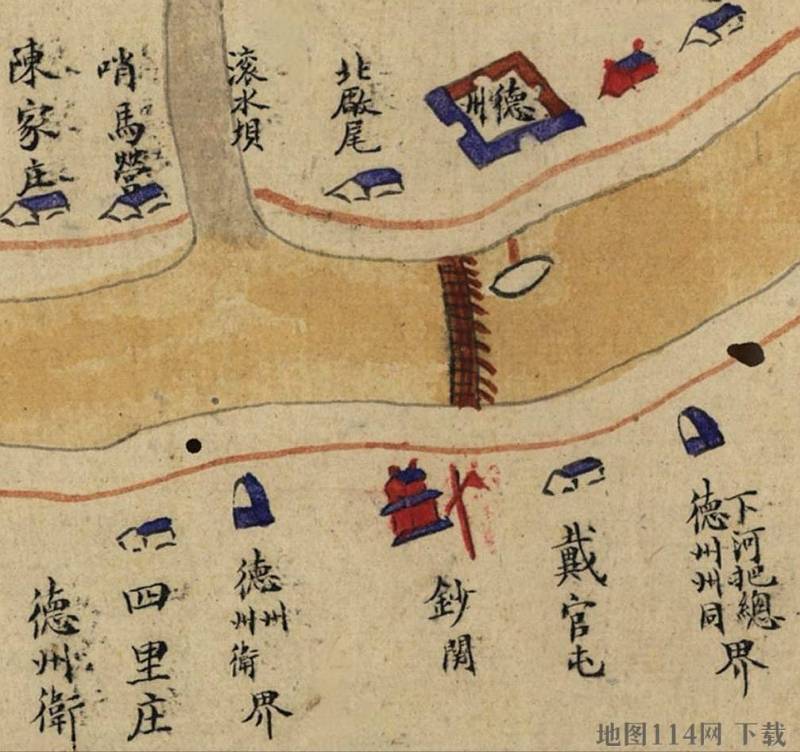 陳家庄
哨馬營
滚水坝
北厫尾
德州
下河把總
德州州同
界
戴官屯
鈔関
州
德州衛
界
四里庄
德州衛
地图114网 下载